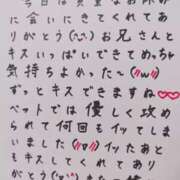 今日は貴重なお休み
に会いにきてくれてあ
りがとう(^^)お兄さんと
キスいっぱいできてめっちゃ
気持ちよかった〜(//ω//)
ずっとキスできますね
ベットでは優しく攻め
られて何回もイッてしま
いました(//ω//)イッたあと
もキスしてくれてあり
がとう